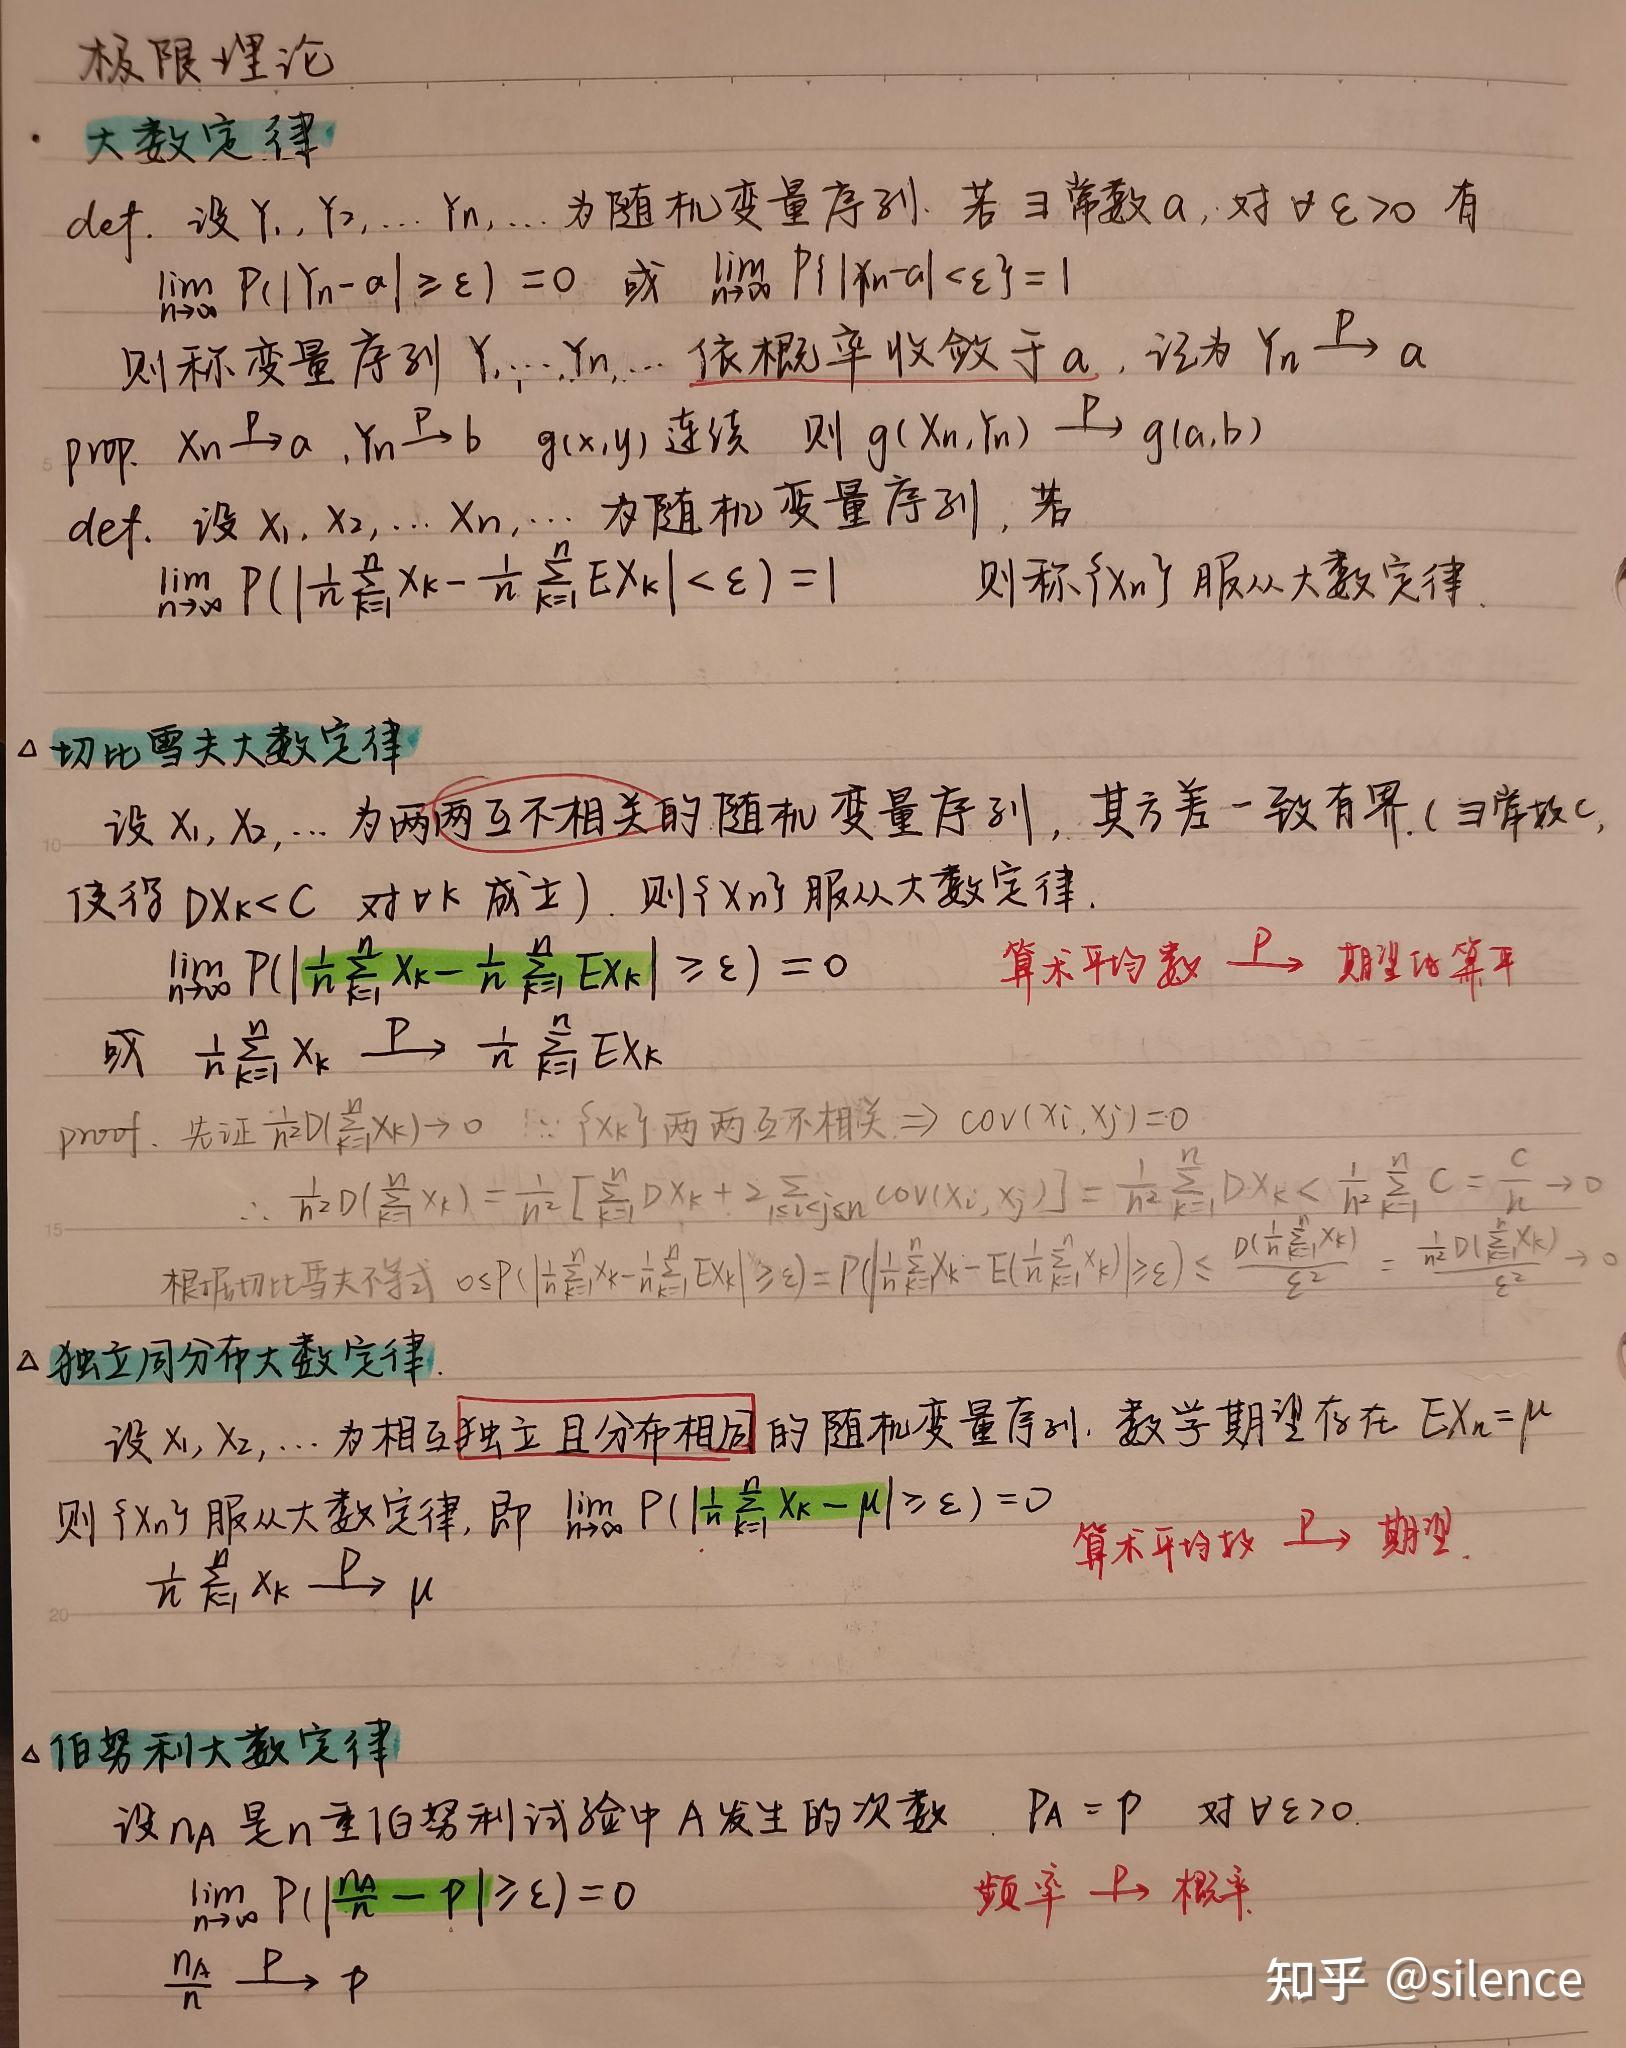 极限理论
· 大数定律
def. 设 Y₁, Y₂, … Yn, … 为随机变量序列. 若 ∃ 常数 a, 对 ∀ ε>0 有
lim n→∞ P(|Yn-a| ≥ ε) = 0 或 lim n→∞ P{|Yn-a| < ε} = 1
则称变量序列 Y₁, …, Yn, … 依概率收敛于 a, 记为 Yn →ᴾ a
prop. Xn →ᴾ a, Yn →ᴾ b g(x,y) 连续 则 g(Xn,Yn) →ᴾ g(a,b)
def. 设 X₁, X₂, … Xn, … 为随机变量序列, 若
lim n→∞ P(|1/n ∑_{k=1}^n Xk - 1/n ∑_{k=1}^n EXk| < ε) = 1 则称{Xn}服从大数定律.
△ 切比雪夫大数定律
设 X₁, X₂, … 为两两互不相关的随机变量序列, 其方差一致有界. (∃常数C,
使得 DXk < C 对∀k 成立). 则{Xn}服从大数定律.
lim n→∞ P(|1/n ∑_{k=1}^n Xk - 1/n ∑_{k=1}^n EXk| ≥ ε) = 0 算术平均数 →ᴾ 期望的算平
或 1/n ∑_{k=1}^n Xk →ᴾ 1/n ∑_{k=1}^n EXk
proof. 先证 1/n² D(∑_{k=1}^n Xk) → 0 ∵ {Xk}两两互不相关 ⇒ cov(Xi, Xj) = 0
∴ 1/n² D(∑_{k=1}^n Xk) = 1/n² [∑_{k=1}^n DXk + 2∑_{1≤i<j≤n} cov(Xi, Xj)] = 1/n² ∑_{k=1}^n DXk < 1/n² ∑_{k=1}^n C = C/n → 0
根据切比雪夫不等式 0≤P(|1/n ∑_{k=1}^n Xk - 1/n ∑_{k=1}^n EXk| ≥ ε) = P(|1/n ∑_{k=1}^n Xk - E(1/n ∑_{k=1}^n Xk)| ≥ ε) ≤ D(1/n ∑_{k=1}^n Xk)/ε² = 1/n² D(∑_{k=1}^n Xk)/ε² → 0
△ 独立同分布大数定律.
设 X₁, X₂, … 为相互独立且分布相同的随机变量序列. 数学期望存在 EXn = μ
则{Xn}服从大数定律, 即 lim n→∞ P(|1/n ∑_{k=1}^n Xk - μ| ≥ ε) = 0
算术平均数 →ᴾ 期望.
1/n ∑_{k=1}^n Xk →ᴾ μ
△ 伯努利大数定律
设 nA 是 n 重伯努利试验中 A 发生的次数. PA = p 对∀ε>0.
lim n→∞ P(|nA/n - p| ≥ ε) = 0 频率 →ᴾ 概率.
nA/n →ᴾ p
知乎 @silence
5
10
15
20